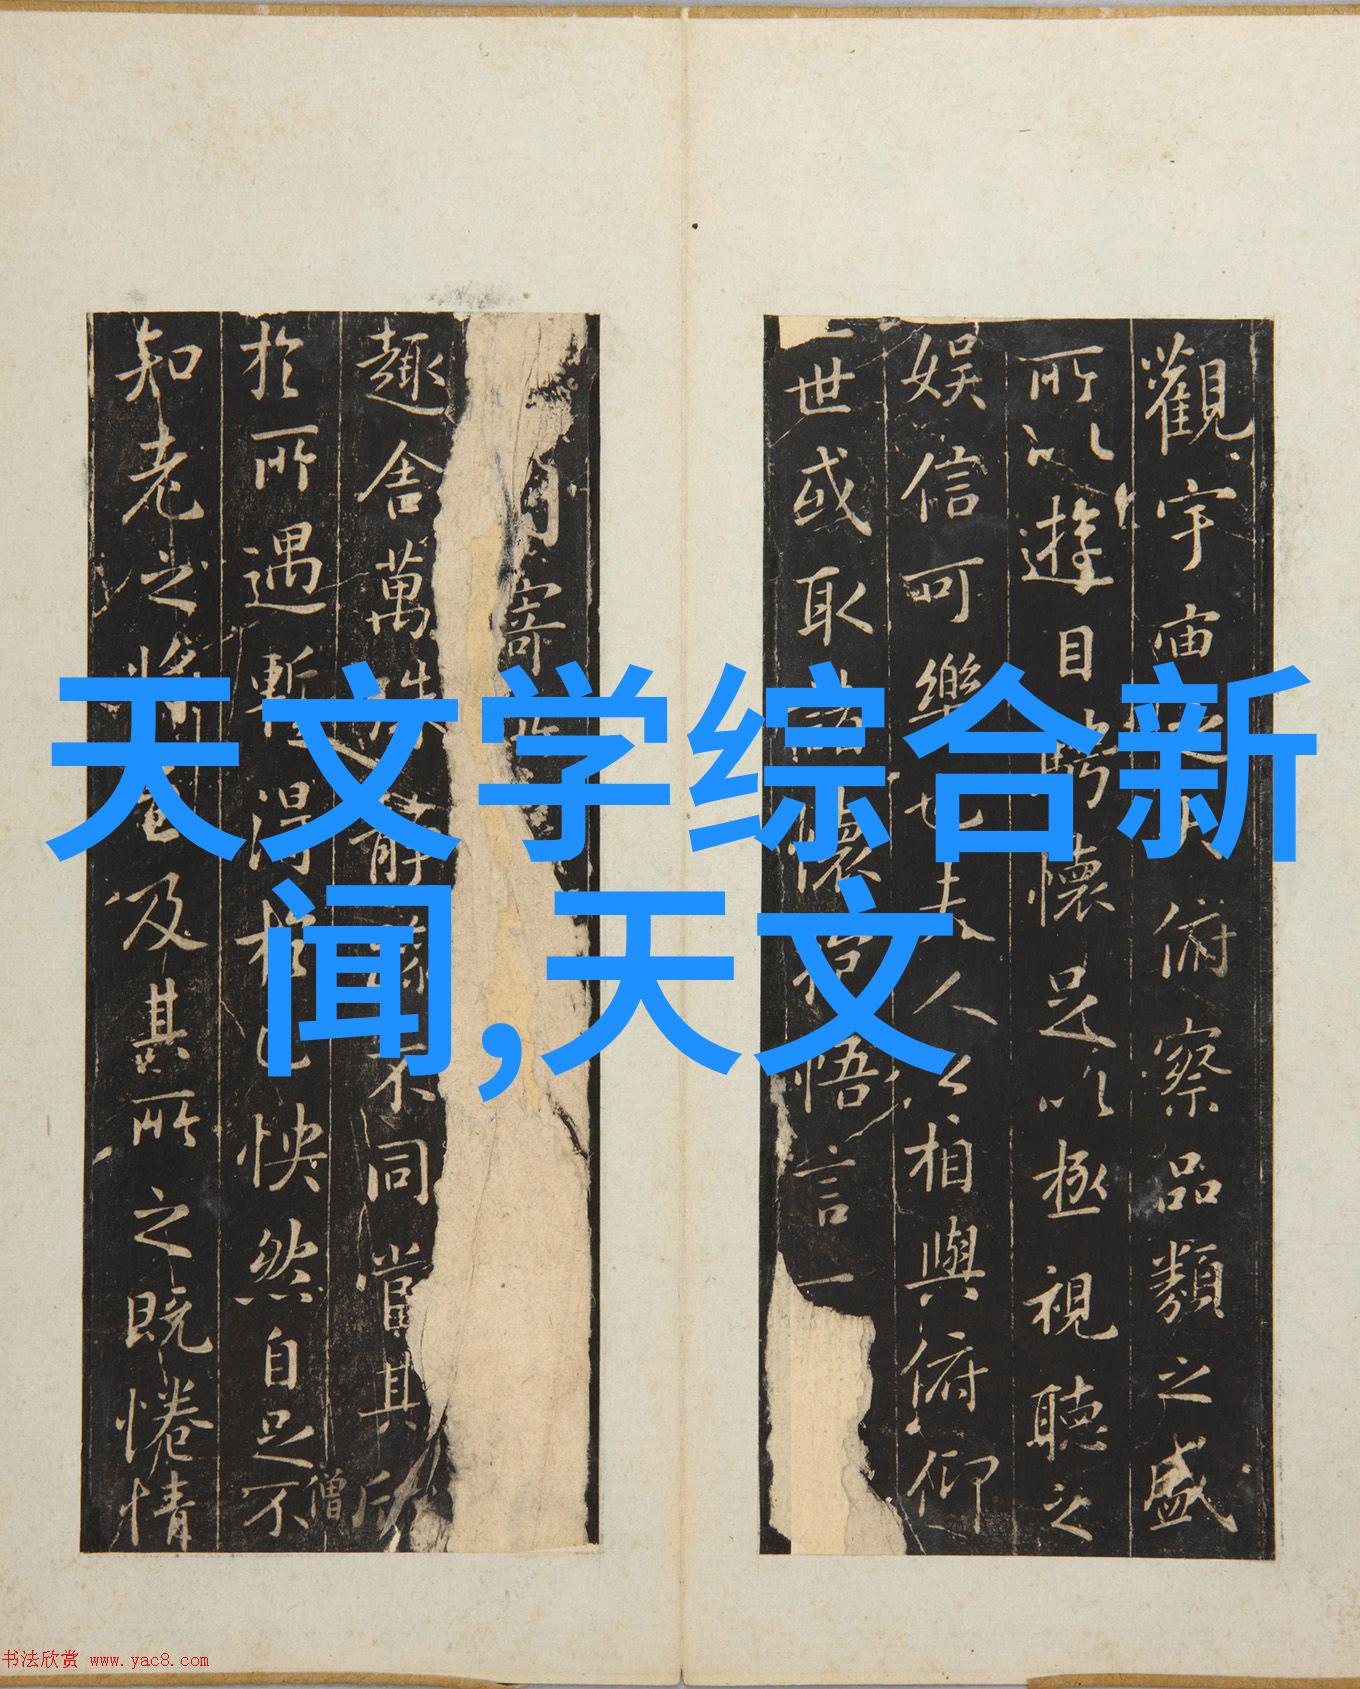 天文学综合新
闻,天文
觀宇宙俯察品類之盛
所以遊目騁懷足以極視聽之
娛信可樂也夫人之相與俯仰
世或取諸懷抱悟言一
寄
趣舍萬殊靜躁不同當其欣
僧
於所遇暫得於己怏然自足不
知老之將至及其所之既惓情
书法欣赏 www.yac8.com